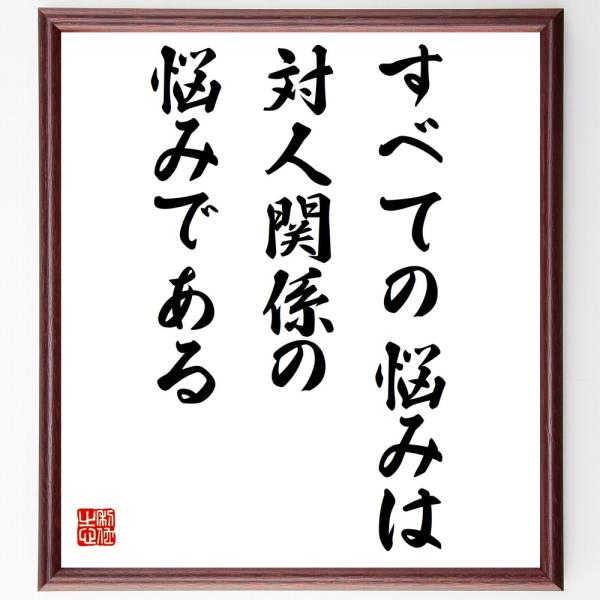 すべての悩みは
対人関係の
悩みである